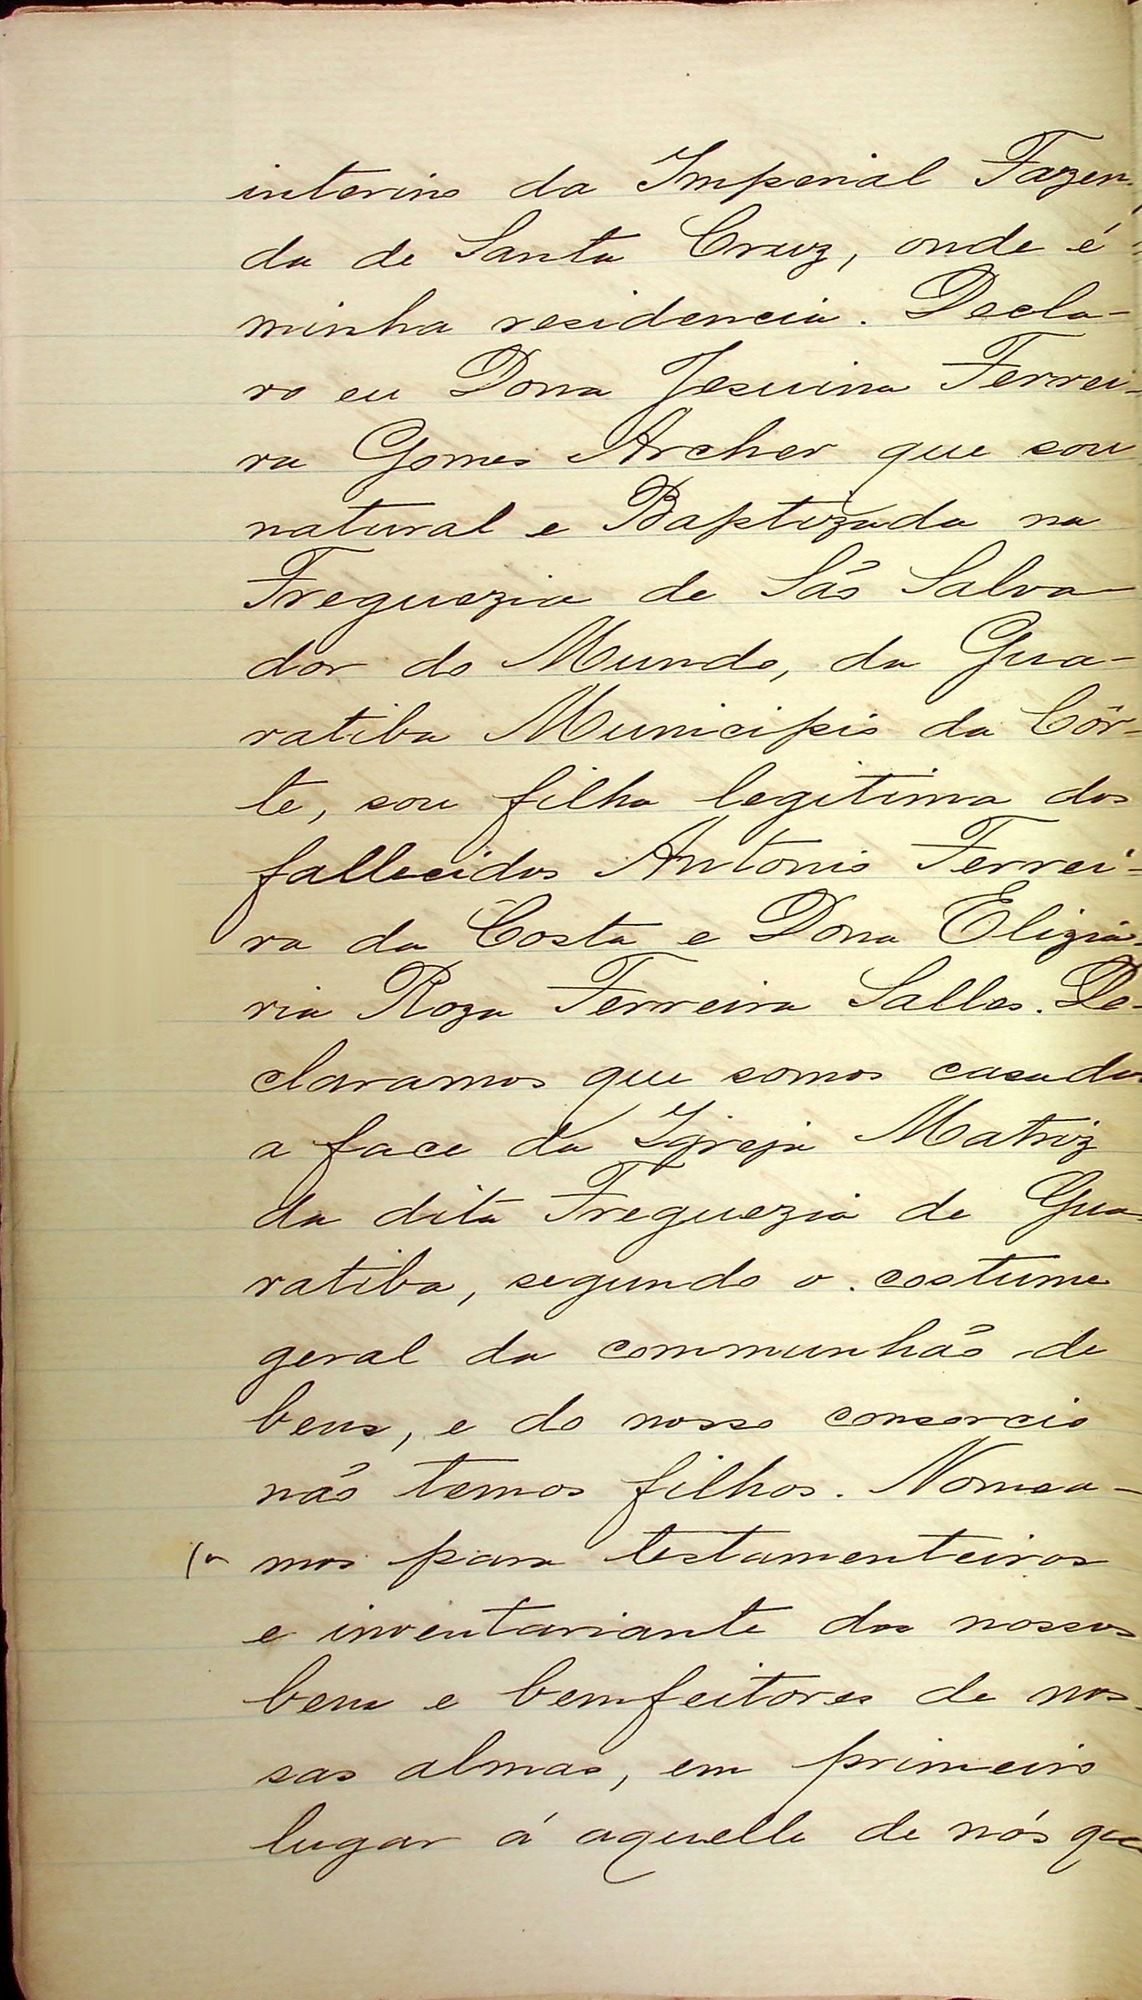 interino da Imperial Fazen-
da de Santa Cruz, onde é
minha residencia. Decla-
ro eu Dona Jesuina Ferrei-
ra Gomes Archer que sou
natural e Baptizada na
Freguezia de São Salva-
dor do Mundo, da Gua-
ratiba Municipio da Côr-
te, sou filha legitima dos
fallecidos Antonio Ferrei-
ra da Costa e Dona Elizia-
ria Roza Ferreira Salles. De-
claramos que somos casados
a face da Igreja Matriz
da dita Freguezia de Gua-
ratiba, segundo o costume
geral da communhão de
bens, e do nosso consorcio
não temos filhos. Nomea-
mos para testamenteiros
e inventariante dos nossos
bens e bemfeitores de nos-
sas almas, em primeiro
lugar á aquelle de nós que